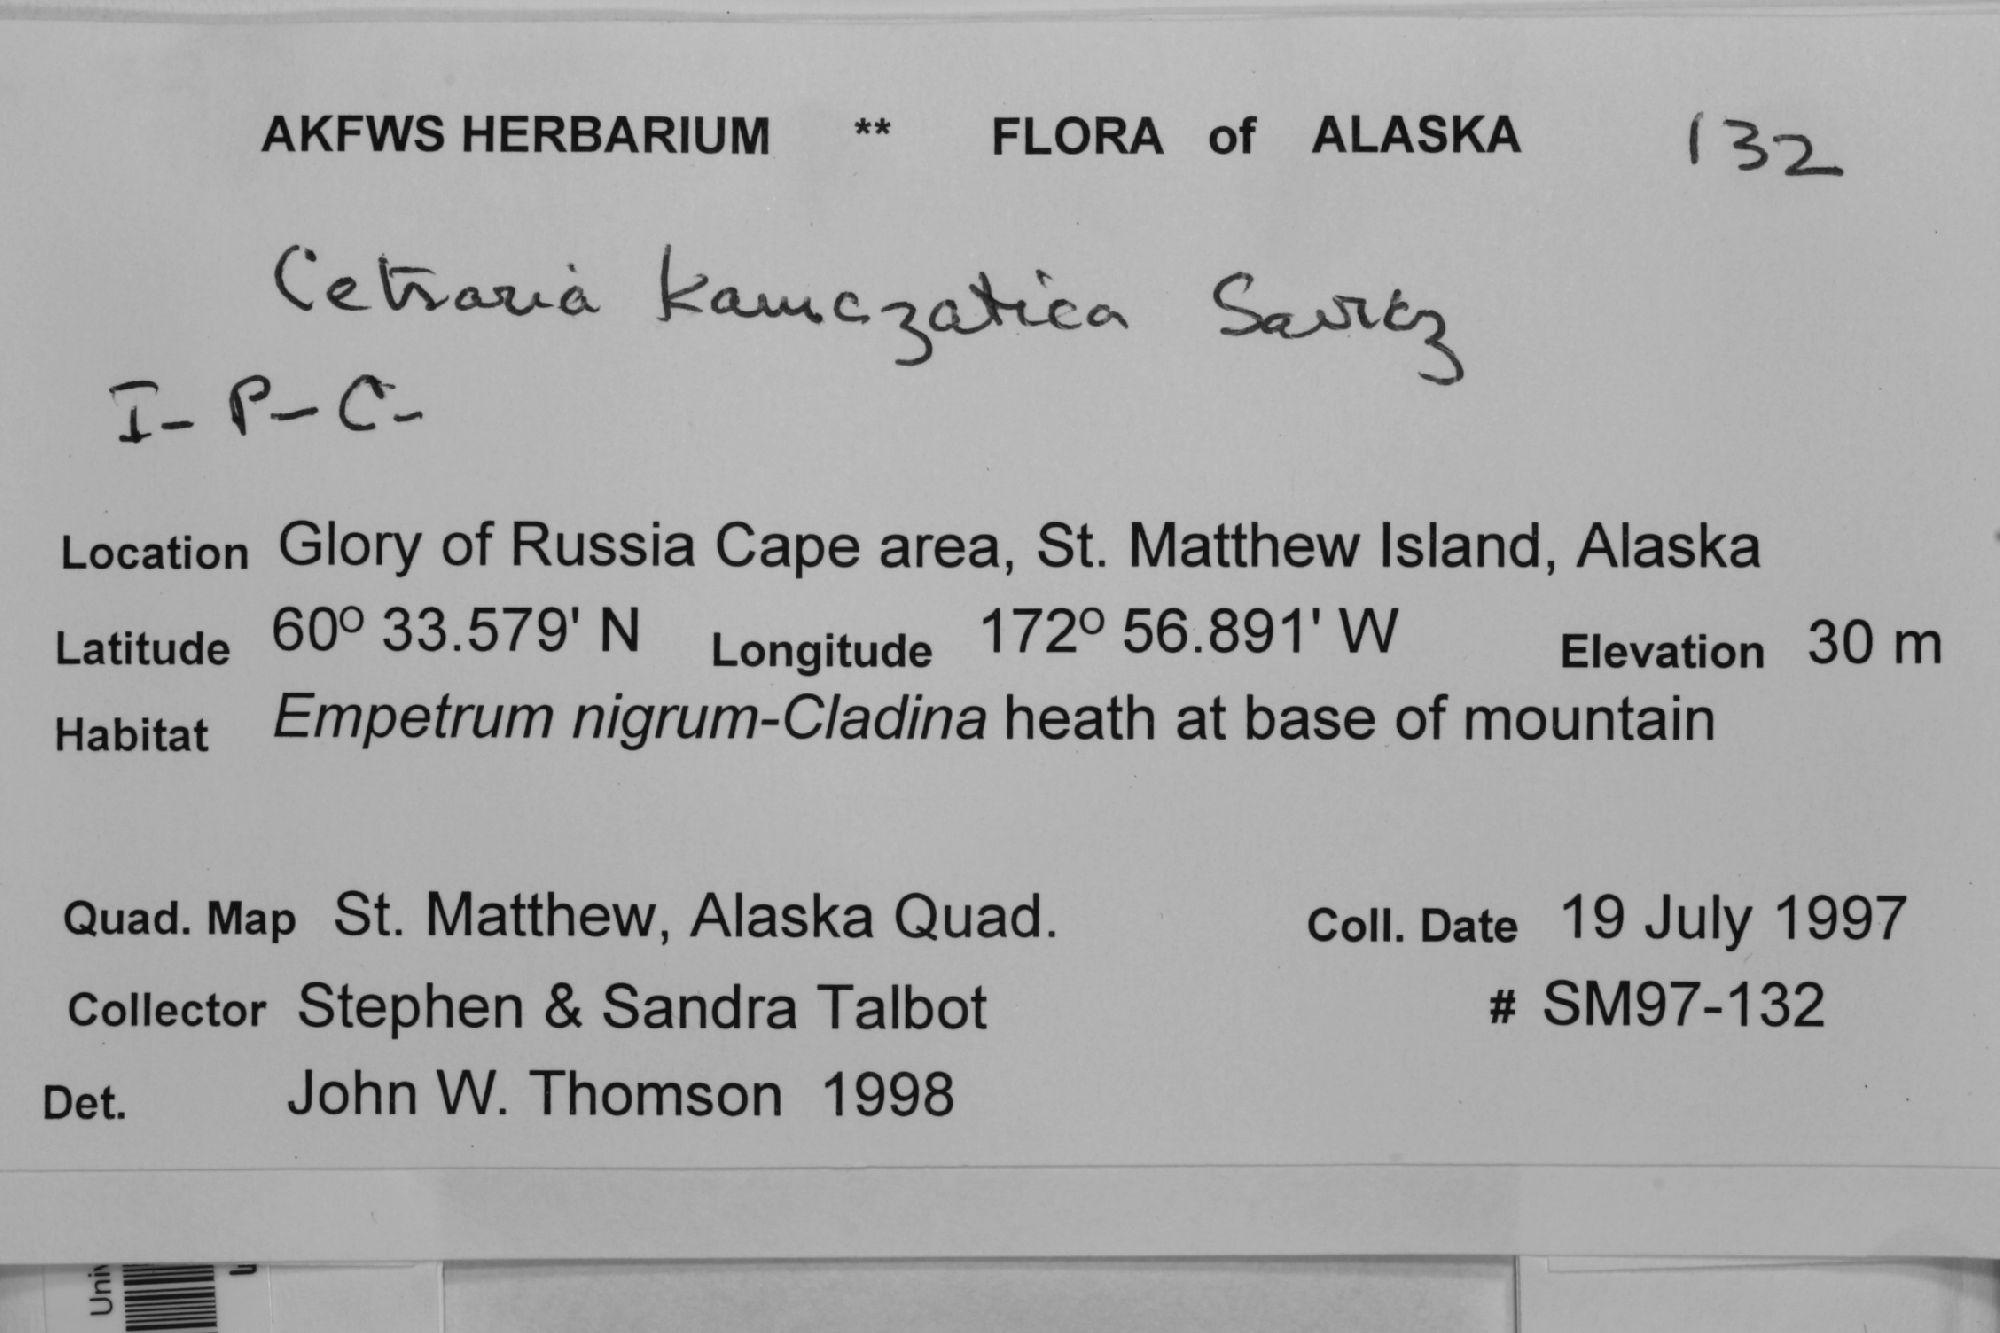 AKFWS HERBARIUM ** FLORA of ALASKA 132
Cetraria kamczatica Savicz
I- P- C-
Location Glory of Russia Cape area, St. Matthew Island, Alaska
Latitude 60° 33.579' N Longitude 172° 56.891' W Elevation 30 m
Habitat Empetrum nigrum-Cladina heath at base of mountain
Quad. Map St. Matthew, Alaska Quad. Coll. Date 19 July 1997
Collector Stephen & Sandra Talbot # SM97-132
Det. John W. Thomson 1998
Univ